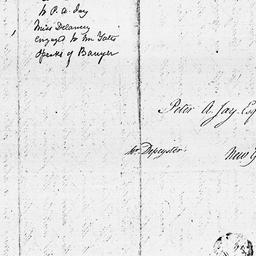 to P. A. Jay
Miss Delancey
engaged to Mr Yates
speaks of Banyer
Peter A. Jay Esq
Mr. Depeyster.
New Y